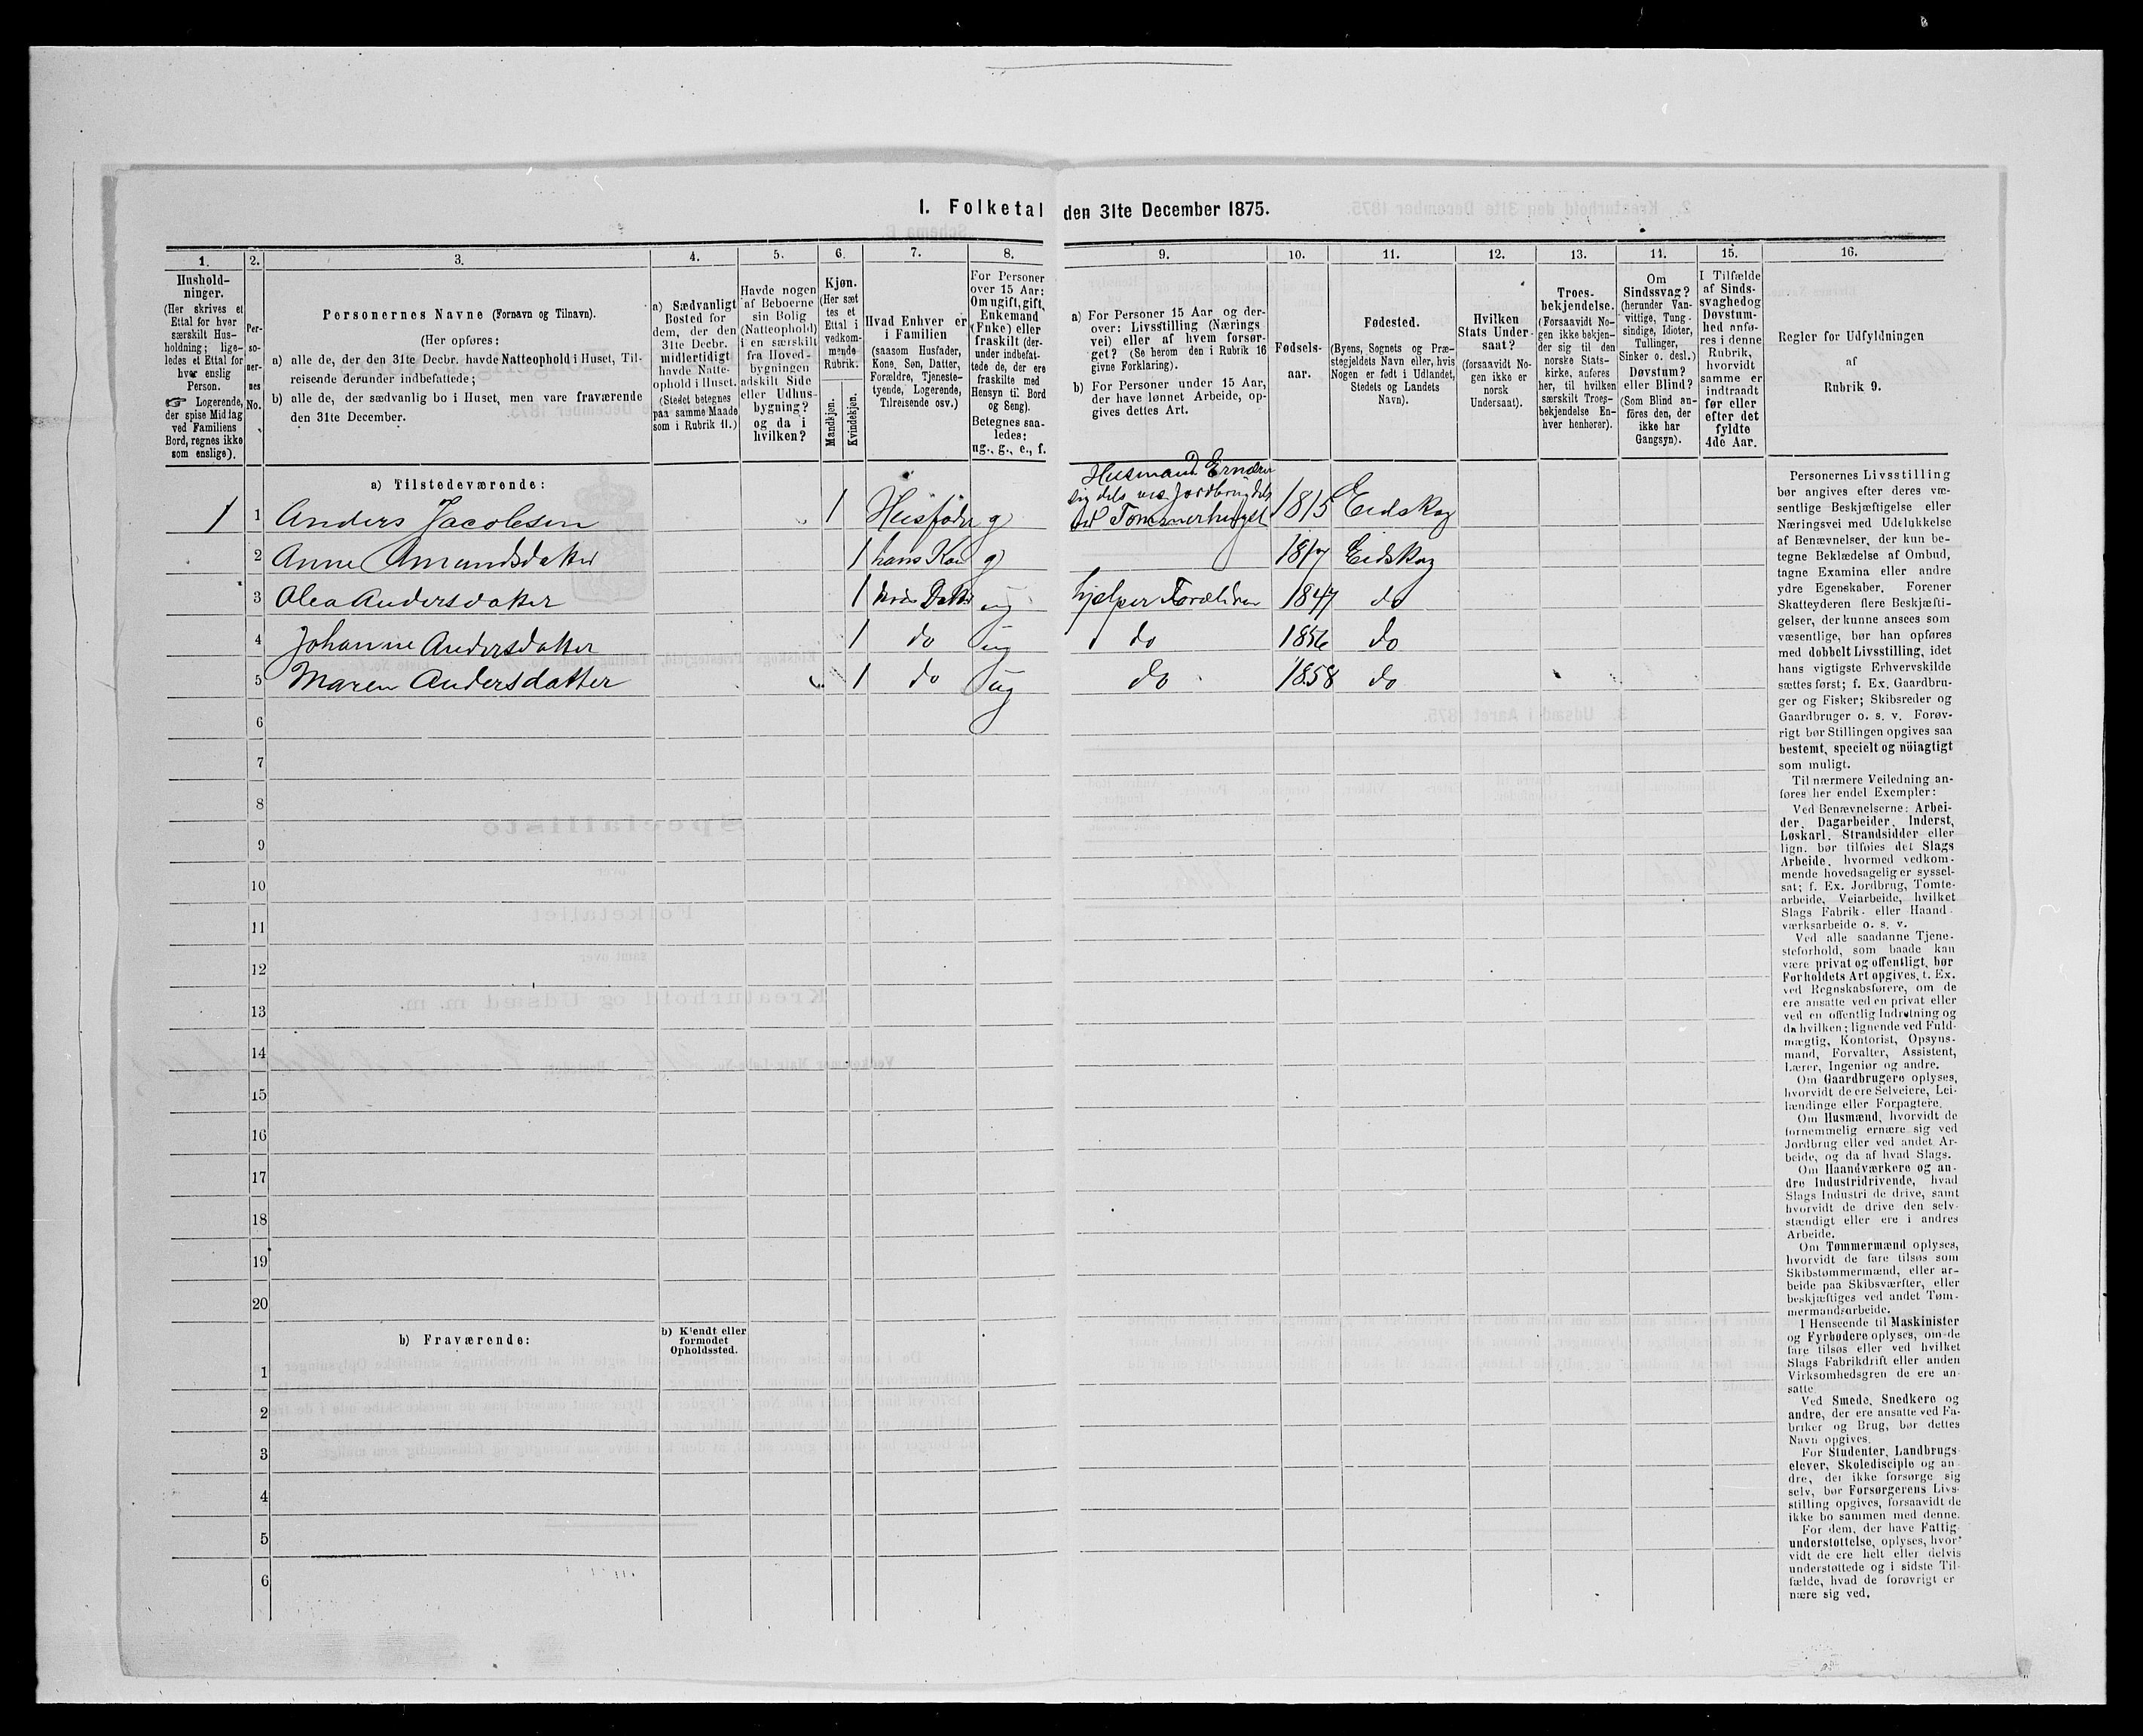 I. Folketal den 31te December 1875.
1.
Hushold-
ninger.
(Her skrives et
Ettal for hver
særskilt Hus-
holdning; lige-
ledes et Ettal for
hver enslig
Person.
☞ Logerende,
der spise Middag
ved Familiens
Bord, regnes ikke
som enslige).
2.
Per-
so-
ner-
nes
No.
3.
Personernes Navne (Fornavn og Tilnavn).
(Her opføres:
a) alle de, der den 31te Decbr. havde Natteophold i Huset, Til-
reisende derunder indbefattede;
b) alle de, der sædvanlig bo i Huset, men vare fraværende
den 31te December.
4.
a) Sædvanligt
Bosted for
dem, der den
31te Decbr.
midlertidigt
havde Natte-
ophold i Huset.
(Stedet betegnes
paa samme Maade
som i Rubrik 11.)
5.
Havde nogen
af Beboerne
sin Bolig
(Natteophold)
i en særskilt
fra Hoved-
bygningen
adskilt Side
eller Udhus-
bygning?
og da i
hvilken?
6.
Kjøn.
(Her sæt
tes et
Ettal i
vedkom-
mende
Rubrik.
Mandkjøn.
Kvindekjøn.
7.
Hvad Enhver er
i Familien
(saasom Husfader,
Kone, Søn, Datter,
Forældre, Tjeneste-
tyende, Logerende,
Tilreisende osv.)
8.
For Personer
over 15 Aar:
Om ugift, gift,
Enkemand
(Enke) eller
fraskilt (der-
under indbefat-
tede de, der ere
fraskilte med
Hensyn til Bord
og Seng).
Betegnes saa-
ledes:
ug., g., e., f.
9.
a) For Personer 15 Aar og der-
over: Livsstilling (Nærings
vei) eller af hvem forsør-
get? (Se herom den i Rubrik 16
givne Forklaring).
b) For Personer under 15 Aar,
der have lønnet Arbeide, op-
gives dettes Art.
10.
Fødsels-
aar.
11.
Fødested.
(Byens, Sognets og Præ-
stegjeldets Navn eller, hvis
Nogen er født i Udlandet,
Stedets og Landets
Navn).
12.
Hvilken
Stats Under-
saat?
(forsaavidt No-
gen ikke er
norsk
Undersaat).
13.
Troes-
bekjendelse.
(Forsaavidt No-
gen ikke bekjen-
der sig til den
norske Stats-
kirke, anføres
her, til hvilken
særskilt Troes-
bekjendelse En-
hver henhører).
14.
Om
Sindssvag?
(herunder Van-
vittige, Tung-
sindige, Idioter,
Tullinger,
Sinker o. desl.)
Døvstum?
eller Blind?
(Som Blind an-
föres den, der
ikke har
Gangsyn).
15.
I Tilfælde
af Sinds-
svaghed og
Døvstum-
hed anfø-
res i denne
Rubrik,
hvorvidt
samme er
indtraadt
før eller
efter det
fyldte
4de Aar.
16.
Regler for Udfyldningen
af
Rubrik 9.
a) Tilstedeværende:
Husmand Ernærer
sig dels ved Jordbrug dels
ved Tømmerhugst
1 1 Anders Jacobsen 1 Husfader g 1815 Eidskog
2 Anne Amundsdatter 1 hans Kone g 1817 Eidskog
3 Olea Andersdatter 1 hans Datter ug hjelper Forældrene 1847 do
4 Johanne Andersdatter 1 do ug do 1856 do
5 Maren Andersdatter 1 do ug do 1858 do
6
7
8
9
10
11
12
13
14
15
16
17
18
19
20
b) Fraværende:
b) Kjendt eller
formodet
Opholdssted.
1
2
3
4
5
6
Personernes Livsstilling
bør angives efter deres væ-
sentlige Beskjæftigelse eller
Næringsvei med Udelukkelse
af Benævnelser, der kun be-
tegne Beklædelse af Ombud,
tagne Examina eller andre
ydre Egenskaber. Forener
Skatteyderen flere Beskjæfti-
gelser, der kunne ansees som
væsentlige, bør han opføres
med dobbelt Livsstilling, idet
hans vigtigste Erhvervskilde
sættes først; f. Ex. Gaardbru-
ger og Fisker; Skibsreder og
Gaardbruger o. s. v. Forøv-
rigt bør Stillingen opgives saa
bestemt, specielt og nöiagtigt
som muligt.
Til nærmere Veiledning an-
føres her endel Exempler:
Ved Benævnelserne: Arbei-
der, Dagarbeider, Inderst,
Løskarl, Strandsidder eller
lign. bør tilføies det Slags
Arbeide, hvormed vedkom-
mende hovedsagelig er syssel-
sat; f. Ex. Jordbrug, Tomte-
arbeide, Veiarbeide, hvilket
Slags Fabrik- eller Haand-
værksarbeide o. s. v.
Ved alle saadanne Tjene-
steforhold, som baade kan
være privat og offentligt, bør
Forholdets Art opgives, t. Ex.
ved Regnskabsførere, om de
ere ansatte ved en privat eller
ved en offentlig Indretning og
da hvilken; lignende ved Fuld-
mægtig, Kontorist, Opsyns-
mand, Forvalter, Assistent,
Lærer, Ingeniør og andre.
Om Gaardbrugere oplyses,
hvorvidt de ere Selveiere, Lei-
lændinge eller Forpagtere.
Om Husmænd, hvorvidt de
fornemmelig ernære sig ved
Jordbrug eller ved andet Ar-
beide, og da af hvad Slags.
Om Haandværkere og an-
dre Industridrivende, hvad
Slags Industri de drive, samt
hvorvidt de drive den selv-
stændigt eller ere i andres
Arbeide.
Om Tømmermænd oplyses,
hvorvidt de fare tilsøs som
Skibstømmermænd, eller ar-
beide paa Skibsværfter, eller
beskjæftiges ved andet Tøm-
mermandsarbeide.
I Henseende til Maskinister
og Fyrbødere oplyses, om de
fare tilsøs eller ved hvilket
Slags Fabrikdrift eller anden
Virksomhedsgren de ere an-
satte.
Ved Smede, Snedkere og
andre, der ere ansatte ved Fa-
briker og Brug, bør dettes
Navn opgives.
For Studenter, Landbrugs-
elever, Skoledisciple og an-
dre, der ikke forsørge sig
selv, bør Forsørgerens Livs-
stilling opgives, forsaavidt de
ikke bo sammen med denne.
For dem, der have Fattig-
understøttelse, oplyses, hvor-
vidt de ere helt eller delvis
understøttede og i sidste Til-
fælde, hvad de forøvrigt er-
nære sig ved.